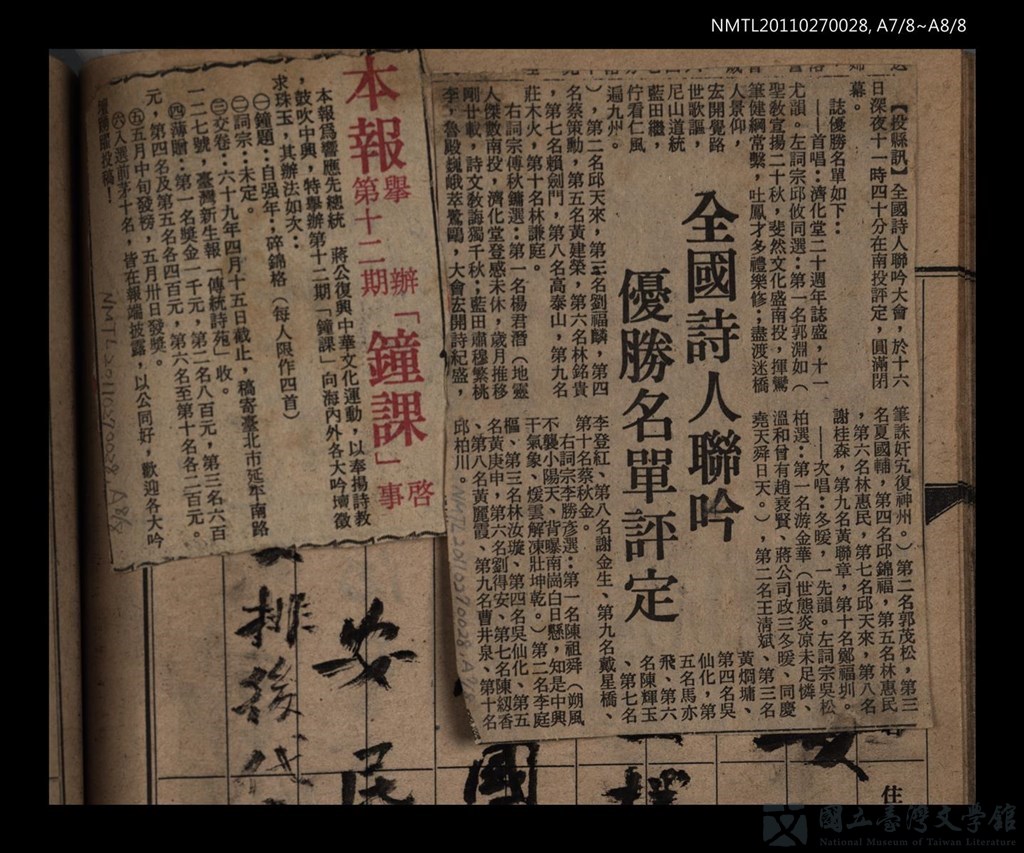 NMTL20110270028, A7/8~A8/8
全國詩人聯吟
優勝名單評定
【投縣訊】全國詩人聯吟大會，於十六
日深夜十一時四十分在南投評定，圓滿閉
幕。
誌優勝名單如下：
——首唱：濟化堂二十週年誌盛，十一
尤韻。左詞宗邱攸同選：第一名郭淵如（
聖教宣揚二十秋，斐然文化盛南投，揮鸞
筆健綱常繫，吐鳳才多禮樂修；盡渡迷橋
人景仰，
宏開覺路
世歌謳，
尼山道統
藍田繼，
佇看仁風
遍九州。
），第二名邱天來，第三名劉福麟，第四
名蔡策勳，第五名黃建榮，第六名林銘貴
，第七名賴劍門，第八名高泰山，第九名
莊木火，第十名林謙庭。
右詞宗傅秋鏞選：第一名楊君潛（地靈
人傑數南投，濟化堂登感未休，歲月推移
剛廿載，詩文教誨獨千秋；藍田肅穆繁桃
李，魯殿巍峨萃鷺鷗，大會宏開詩紀盛，
筆誅奸宄復神州。）第二名郭茂松，第三
名夏國輔，第四名邱錦福，第五名林惠民
，第六名林惠民，第七名邱天來，第八名
謝桂森，第九名黃聯章，第十名鄭福圳。
——次唱：冬暖，一先韻。左詞宗吳松
柏選：第一名游金華（世態炎凉未足憐、
溫和曾有趙衰賢、蔣公司政三冬暖、同慶
堯天舜日天。），第二名王清斌、第三名
黃烱墉、
第四名吳
仙化，第
五名馬亦
飛、第六
名陳輝玉
、第七名
李登紅、第八名謝金生、第九名戴星橋、
第十名蔡秋金。
右詞宗李勝彥選：第一名陳祖舜（朔風
不襲小陽天、背曝南崗白日懸，知是中興
干氣象、煖雲解凍壯坤乾。）第二名李庭
樞、第三名林汝璇、第四名吳仙化、第五
名黃庚申，第六名劉得安、第七名陳紉香
、第八名黃麗霞、第九名曹井泉、第十名
邱柏川。
本報舉辦「鐘課」啓事
第十二期
本報爲響應先總統　蔣公復興中華文化運動，以奉揚詩教
，鼓吹中興，特舉辦第十二期「鐘課」向海內外各大吟壇徵
求珠玉，其辦法如次：
㈠鐘題：自强年；碎錦格（每人限作四首）
㈡詞宗：未定。
㈢交卷：六十九年四月十五日截止，稿寄臺北市延平南路
一二七號，臺灣新生報「傳統詩苑」收。
㈣薄贈：第一名奬金一千元，第二名八百元，第三名六百
元，第四名及第五名各四百元，第六名至第十名各二百元。
㈤五月中旬發榜，五月卅日發獎。
㈥入選前茅十名，皆在報端披露，以公同好，歡迎各大吟
NMTL20110270028, A8/8
排後
安
民
國
住
國立臺灣文學館
National Museum of Taiwan Literature